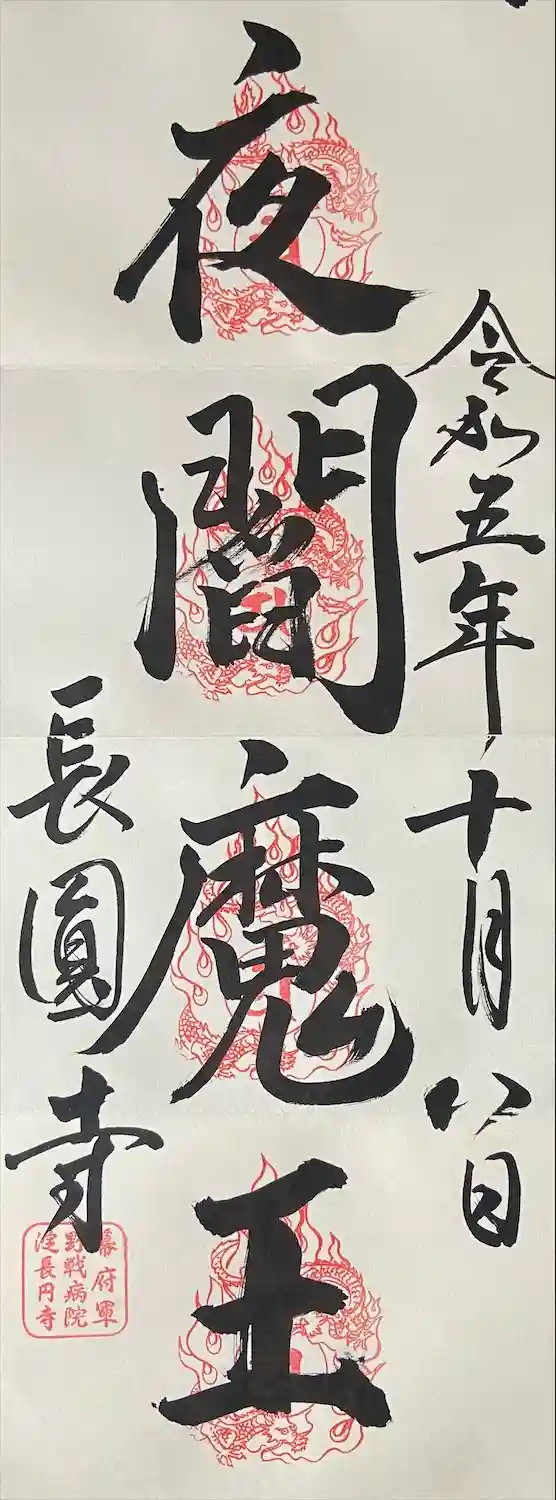 令和五年十月八日
夜閻魔王
長圓寺
幕府軍
野戦病院
淀長円寺